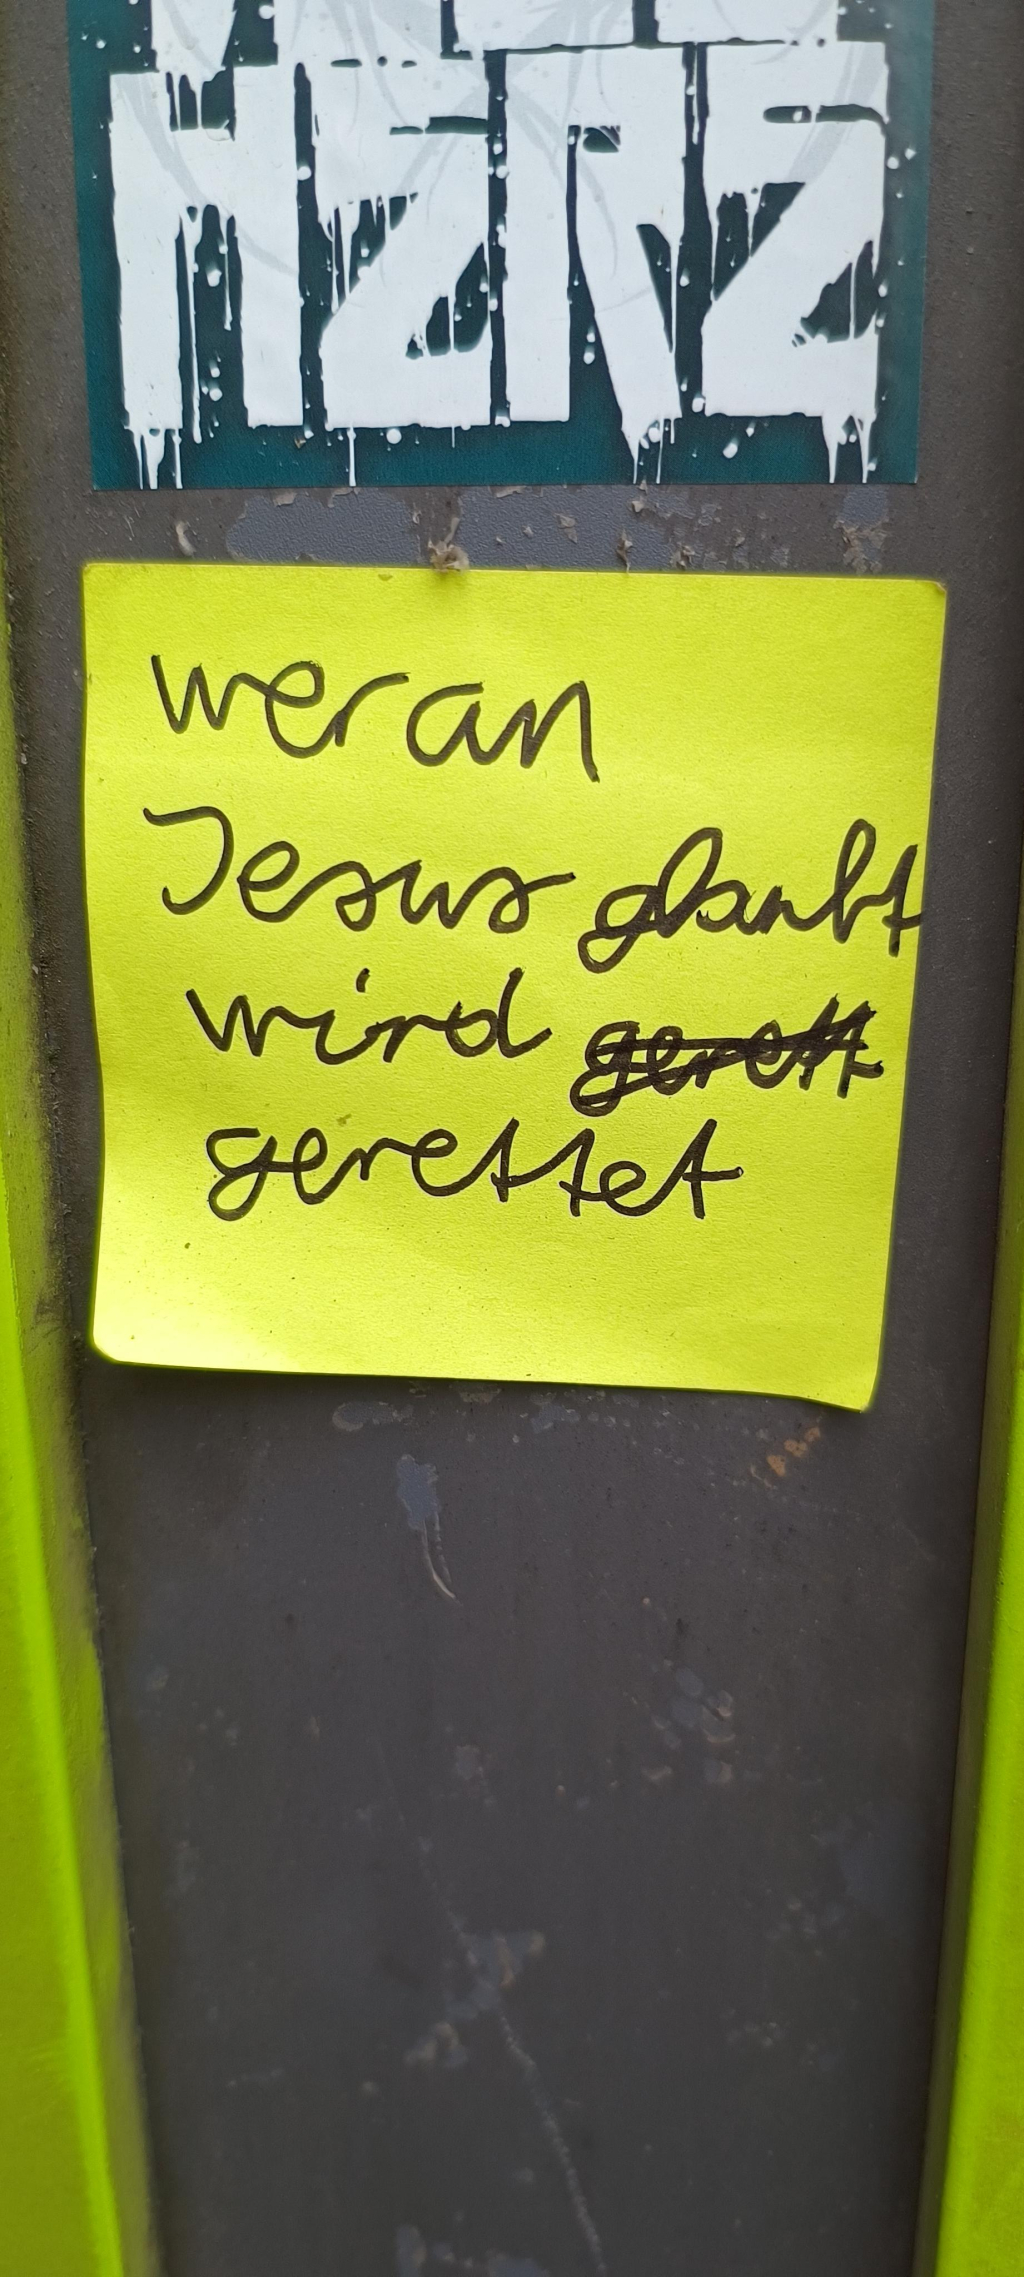 HERZ
wer an
Jesus glaubt
wird gerett
gerettet